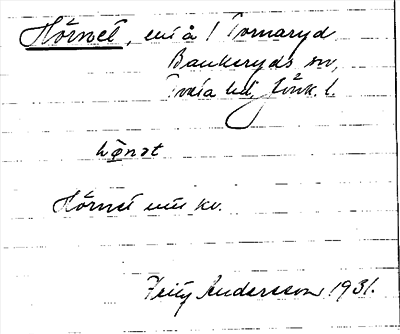 Hörnet, enl å 1 Tomaryd
Bankeryds sn,
Tveta hd, Jönk. l.
hö̀nət
Hörnet nu kv.
Fritz Andersson 1931.